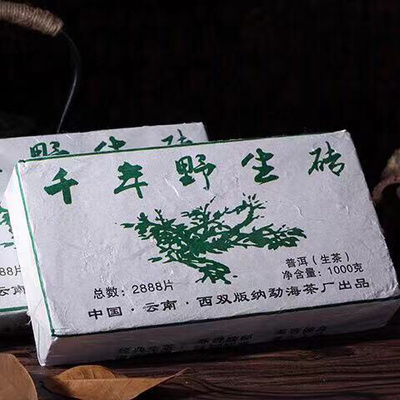 千年野生砖
普洱（生茶）
总数：2888片
净含量：1000克
中国·云南·西双版纳勐海茶厂出品
8片
云南·